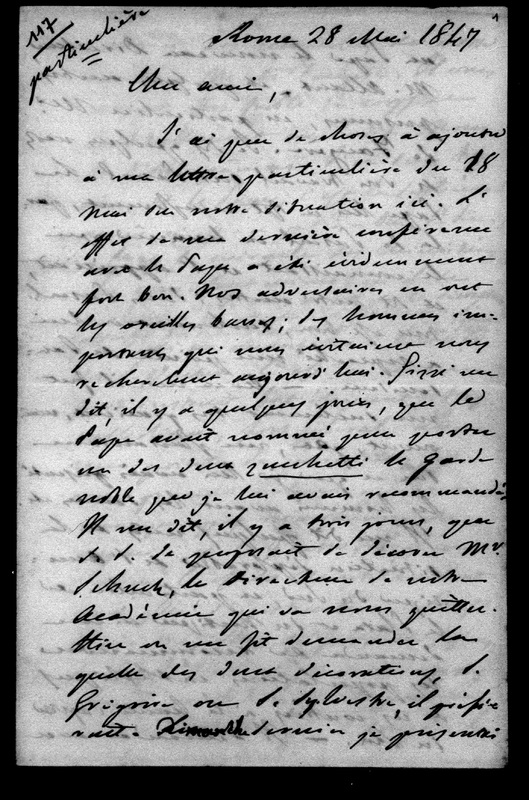 117
particulière
Rome 28 Mai 1847
Cher ami,
J'ai peu de choses à ajouter
à ma lettre particulière du 18
Mai sur notre situation ici. L'
effet de ma dernière conférence
avec le Pape a été évidemment
fort bon. Nos adversaires en ont
les oreilles basses; des hommes im-
portants qui nous évitaient nous
recherchent aujourd'hui. Gizzi me
dit, il y a quelques jours, que le
Pape avait nommé pour porter
un des deux zucchetti le garde
noble que je lui avais recommandé.
Il me dit, il y a trois jours, que
S. S. se proposait de décorer Mr.
Schnetz, le Directeur de notre
Académie qui va nous quitter.
Hier on me fit demander la
quelle des deux décorations, S.
Grégoire ou S. Sylvestre, il préfé-
rait. Dimanche dernier je présentai